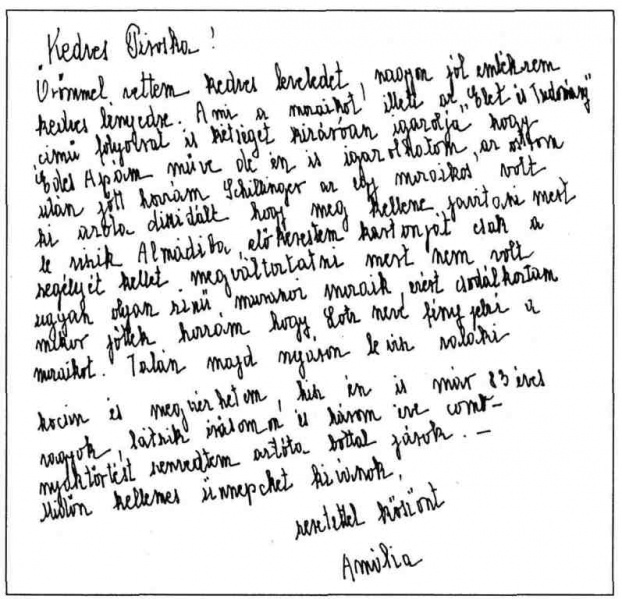 Kedves Piroska!
Örömmel vettem kedves leveledet, nagyon jól emlékszem
kedves lényedre. Ami a mozaikot illeti az "Élet és Tudomány"
című folyóirat is kétséget kizáróan igazolja, hogy
Édes Apám műve de én is igazolhatom, az ostrom
után jött hozzám Schillinger az egy mozaikos volt
ki arról dixidált hogy meg kellene javítani mert
le viszik Almádiba, előkerestem kartonját csak a
segélyét kellet megváltoztatni mert nem volt
ugyan olyan színű muranoi mozaik, ezért csodálkoztam
mikor jöttek hozzám hogy Lotz neve fény jelzi a
mozaikot. Talán majd nyáron le visz valaki
kocsin és megnézhetem, hisz én is már 83 éves
vagyok, látszik írásomon, és három éve comb-
nyaktörést szenvedtem azóta bottal járok. —
Mielőbb kellemes ünnepeket kívánok,
szeretettel köszönt
Amália